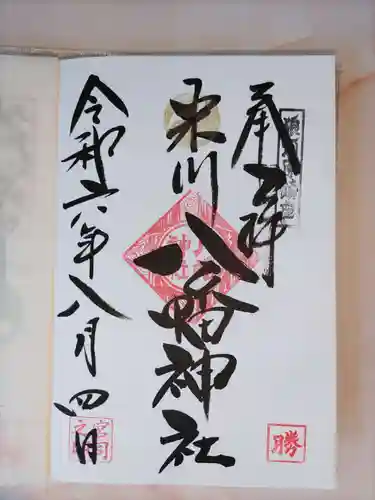 奉拝
川八幡神社
令和六年八月四日
勝
宮司之印